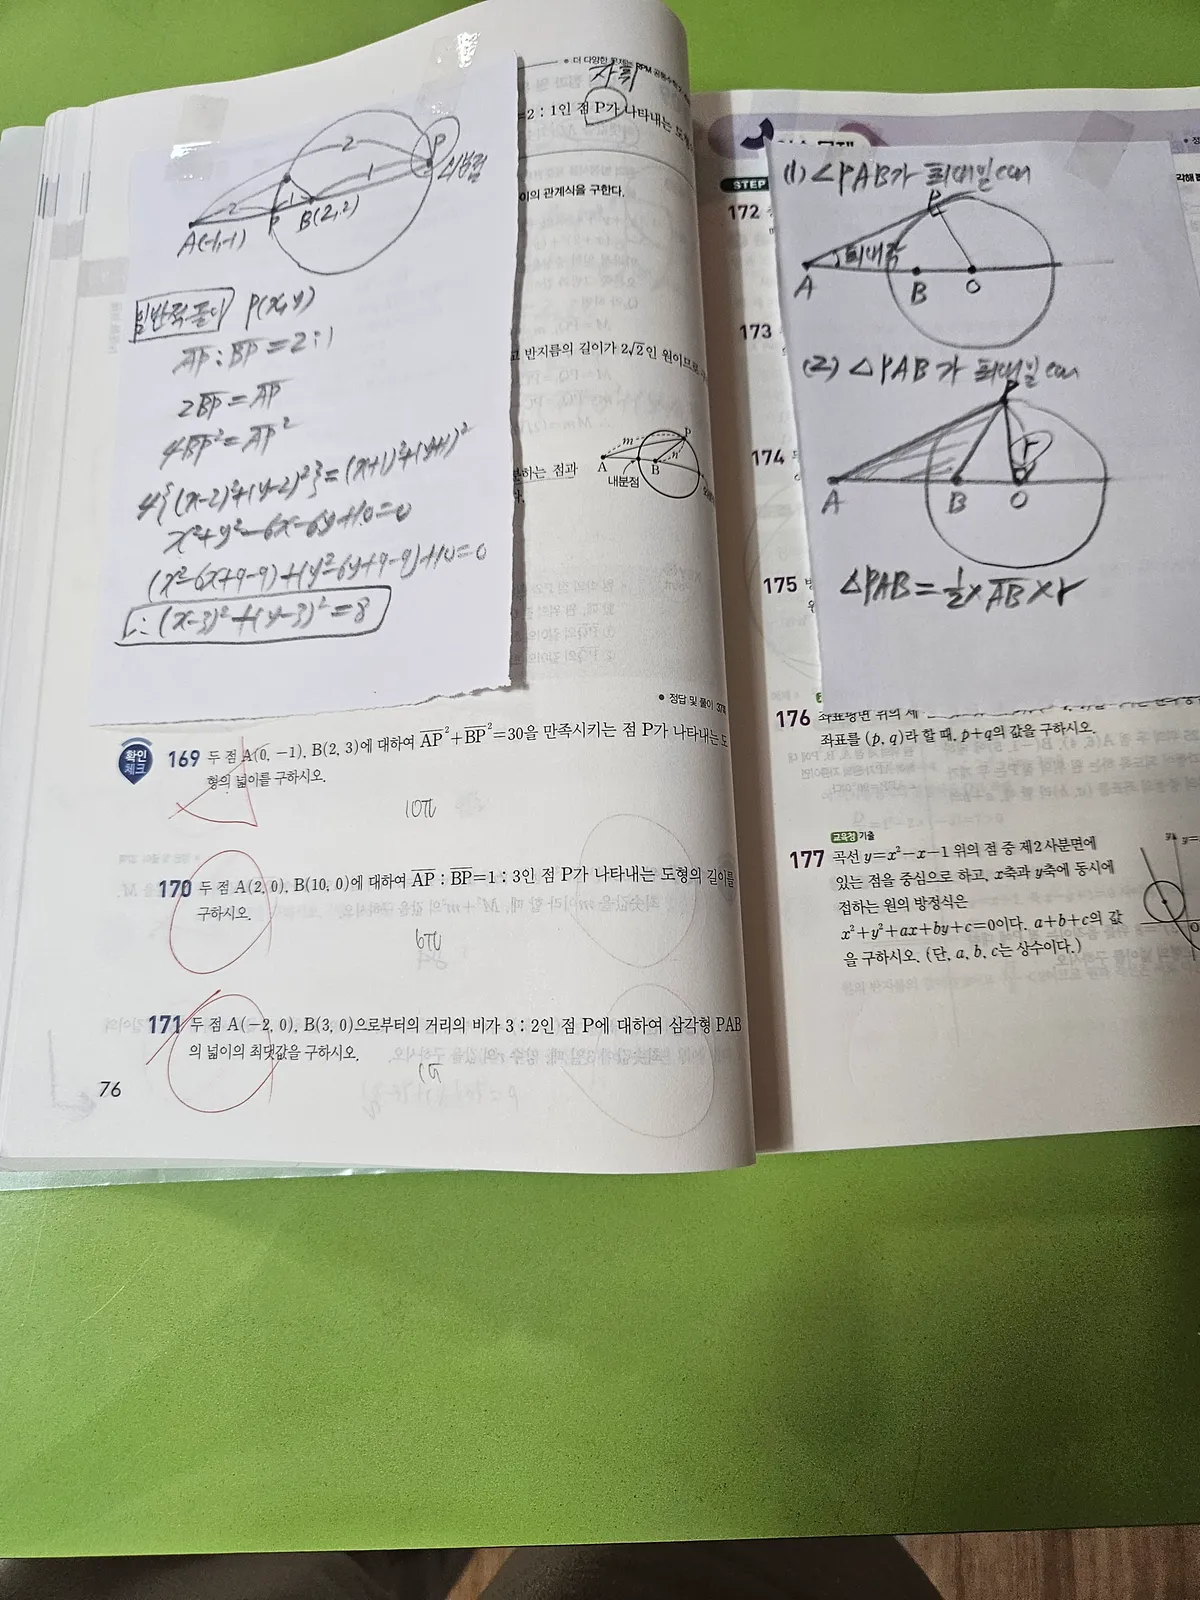 • 더 다양한 문제는 RPM 공통수학2
자취
=2 : 1인 점 P가 나타내는 도형
이의 관계식을 구한다.
고 반지름의 길이가 2√2인 원이므로
분하는 점과
m
n
A
B
P
내분점
2
1
P
외분점
2
1
A(-1,-1)
P
B(2,2)
일반적 풀이 P(x,y)
AP : BP = 2 : 1
2BP = AP
4BP² = AP²
4{(x-2)²+(y-2)²} = (x+1)²+(y+1)²
x²+y²-6x-6y+10=0
(x²-6x+9-9)+(y²-6y+9-9)+10=0
∴ (x-3)²+(y-3)²=8
• 정답 및 풀이 37쪽
확인
체크
169 두 점 A(0, -1), B(2, 3)에 대하여 AP²+BP²=30을 만족시키는 점 P가 나타내는 도
형의 넓이를 구하시오.
10π
170 두 점 A(2, 0), B(10, 0)에 대하여 AP : BP=1 : 3인 점 P가 나타내는 도형의 길이를
구하시오.
171 두 점 A(-2, 0), B(3, 0)으로부터의 거리의 비가 3 : 2인 점 P에 대하여 삼각형 PAB
의 넓이의 최댓값을 구하시오.
76
STEP
172
173
174
175
(1) ∠PAB가 최대일 때
P
최대각
A
B
O
(2) △PAB가 최대일 때
P
r
A
B
O
△PAB = ½ × AB × r
176 좌표평면 위의 세
좌표를 (p, q)라 할 때, p+q의 값을 구하시오.
교육청 기출
177 곡선 y=x²-x-1 위의 점 중 제2사분면에
있는 점을 중심으로 하고, x축과 y축에 동시에
접하는 원의 방정식은
x²+y²+ax+by+c=0이다. a+b+c의 값
을 구하시오. (단, a, b, c는 상수이다.)
y
O